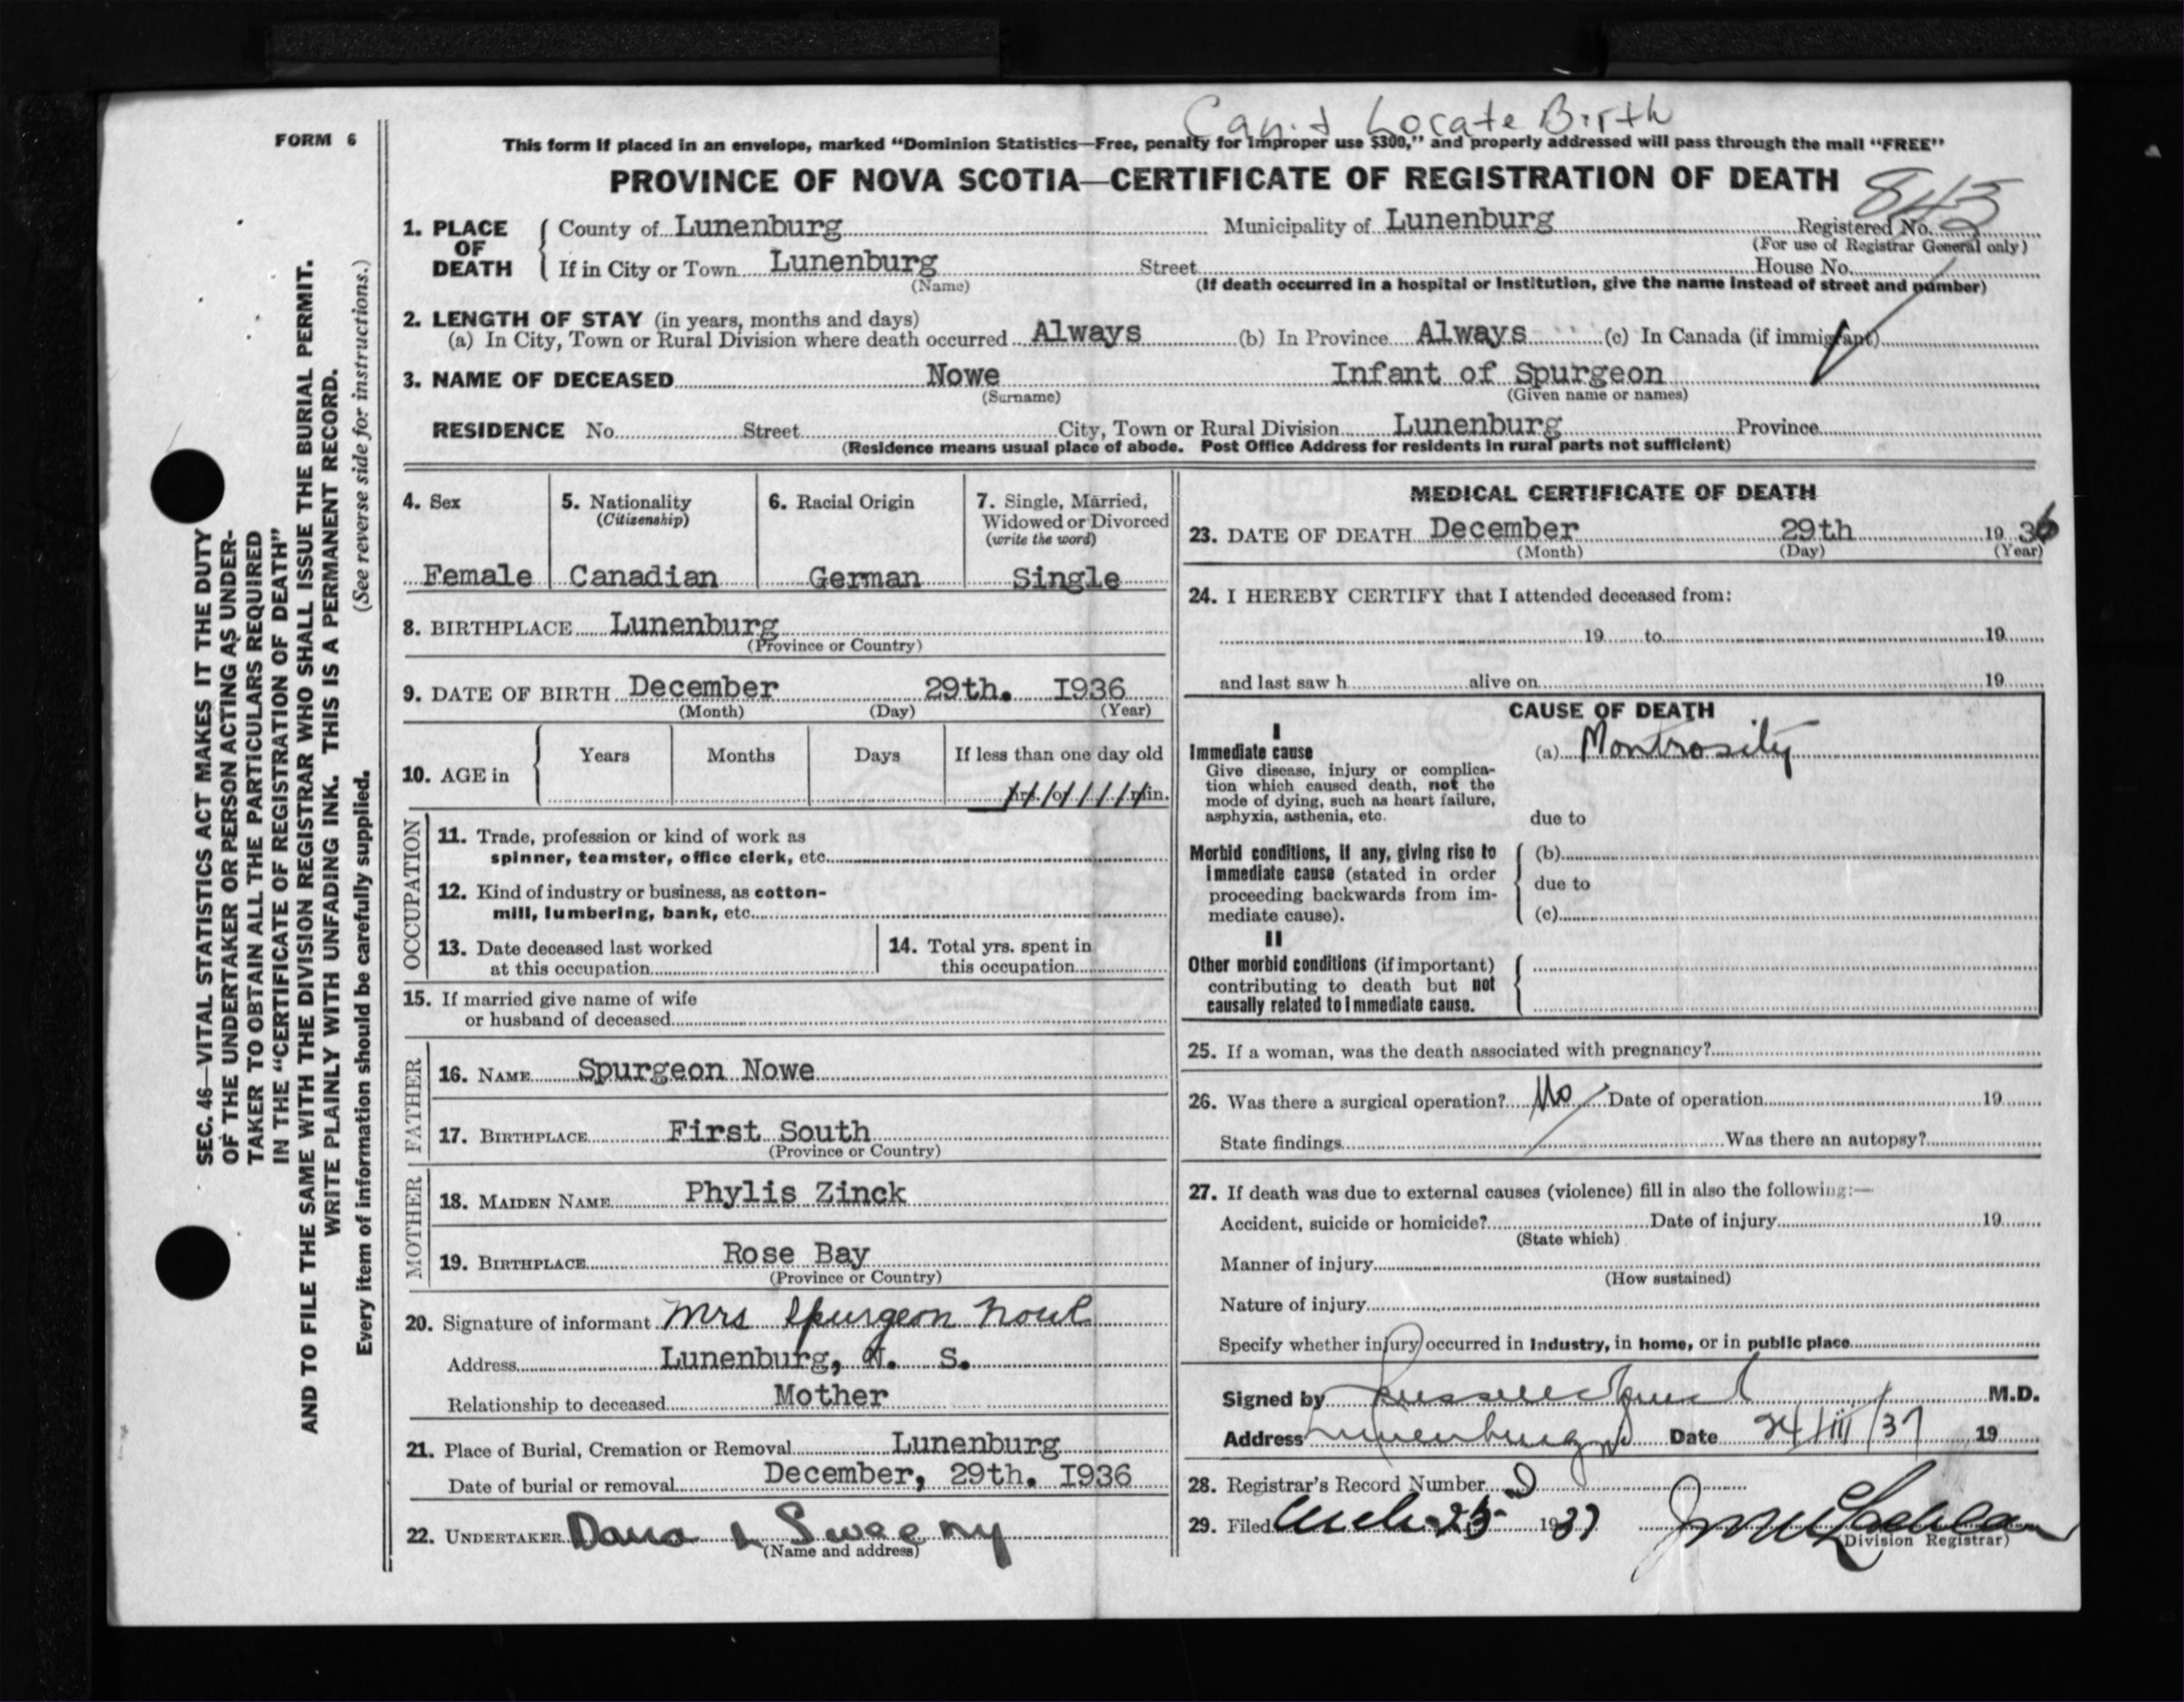 Can't Locate Birth
FORM 6
This form if placed in an envelope, marked "Dominion Statistics—Free, penalty for improper use $300," and properly addressed will pass through the mail "FREE"
PROVINCE OF NOVA SCOTIA—CERTIFICATE OF REGISTRATION OF DEATH
843
1. PLACE OF DEATH County of Lunenburg Municipality of Lunenburg Registered No.
(For use of Registrar General only)
If in City or Town Lunenburg Street House No.
(Name) (If death occurred in a hospital or institution, give the name instead of street and number)
2. LENGTH OF STAY (in years, months and days)
(a) In City, Town or Rural Division where death occurred Always (b) In Province Always (c) In Canada (if immigrant)
3. NAME OF DECEASED Nowe Infant of Spurgeon
(Surname) (Given name or names)
RESIDENCE No. Street City, Town or Rural Division Lunenburg Province
(Residence means usual place of abode. Post Office Address for residents in rural parts not sufficient)
4. Sex 5. Nationality 6. Racial Origin 7. Single, Married,
(Citizenship) Widowed or Divorced
(write the word)
Female Canadian German Single
8. BIRTHPLACE Lunenburg
(Province or Country)
9. DATE OF BIRTH December 29th. I936
(Month) (Day) (Year)
10. AGE in Years Months Days If less than one day old
hrs. or min.
OCCUPATION
11. Trade, profession or kind of work as
spinner, teamster, office clerk, etc.
12. Kind of industry or business, as cotton-
mill, lumbering, bank, etc.
13. Date deceased last worked
at this occupation
14. Total yrs. spent in
this occupation
15. If married give name of wife
or husband of deceased
FATHER
16. NAME Spurgeon Nowe
17. BIRTHPLACE First South
(Province or Country)
MOTHER
18. MAIDEN NAME Phylis Zinck
19. BIRTHPLACE Rose Bay
(Province or Country)
20. Signature of informant Mrs Spurgeon Nowe
Address Lunenburg, N. S.
Relationship to deceased Mother
21. Place of Burial, Cremation or Removal Lunenburg
Date of burial or removal December, 29th. I936
22. UNDERTAKER Dana L Sweeny
(Name and address)
MEDICAL CERTIFICATE OF DEATH
23. DATE OF DEATH December 29th 1936
(Month) (Day) (Year)
24. I HEREBY CERTIFY that I attended deceased from:
19 to 19
and last saw h alive on 19
CAUSE OF DEATH
I
Immediate cause (a) Montrosity
Give disease, injury or complica-
tion which caused death, not the
mode of dying, such as heart failure,
asphyxia, asthenia, etc. due to
Morbid conditions, if any, giving rise to (b)
immediate cause (stated in order
proceeding backwards from im- due to
mediate cause). (c)
II
Other morbid conditions (if important)
contributing to death but not
causally related to immediate cause.
25. If a woman, was the death associated with pregnancy?
26. Was there a surgical operation? No Date of operation 19
State findings Was there an autopsy?
27. If death was due to external causes (violence) fill in also the following:—
Accident, suicide or homicide? Date of injury 19
(State which)
Manner of injury
(How sustained)
Nature of injury
Specify whether injury occurred in industry, in home, or in public place
Signed by M.D.
Address Lunenburg Date 24/III/37 19
28. Registrar's Record Number
29. Filed 25 1937
(Division Registrar)
SEC. 46—VITAL STATISTICS ACT MAKES IT THE DUTY
OF THE UNDERTAKER OR PERSON ACTING AS UNDER-
TAKER TO OBTAIN ALL THE PARTICULARS REQUIRED
IN THE "CERTIFICATE OF REGISTRATION OF DEATH"
AND TO FILE THE SAME WITH THE DIVISION REGISTRAR WHO SHALL ISSUE THE BURIAL PERMIT.
WRITE PLAINLY WITH UNFADING INK. THIS IS A PERMANENT RECORD.
Every item of information should be carefully supplied. (See reverse side for instructions.)